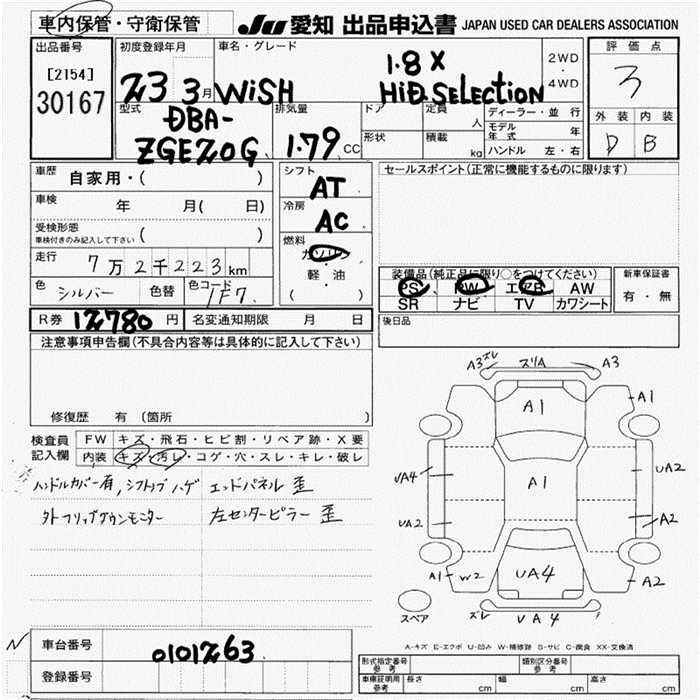 車内保管・守衛保管
JU 愛知 出品申込書 JAPAN USED CAR DEALERS ASSOCIATION
出品番号
[2154]
30167
初度登録年月
23 3月
車名・グレード
WiSH 1.8 X
HiD.SELECTiON
2WD
・
4WD
評価点
3
外装 内装
D B
型式
DBA-
ZGE20G
排気量
1.79 CC
ドア
形状
定員 人
積載 kg
ディーラー・並行
モデル年式 年
ハンドル 左・右
車歴 自家用・( )
車検 年 月( 日)
受検形態
車検付きのみ記入して下さい ( )
走行 7万2千223km
色 シルバー 色替 色コード 1F7
シフト
AT
冷房
AC
燃料
ガソリン
・
軽油
( )
セールスポイント(正常に機能するものに限ります)
装備品(純正品に限り○をつけてください)
PS PW エアB AW
SR ナビ TV カワシート
新車保証書
有・無
R券 12780円 名変通知期限 月 日
後日品
注意事項申告欄(不具合内容等は具体的に記入して下さい)
修復歴 有 (箇所
検査員
記入欄
FW キズ・飛石・ヒビ割・リペア跡・X要
内装 キズ・汚レ・コゲ・穴・スレ・キレ・破レ
ハンドルカバー有, シフトノブハゲ エンドパネル歪
外フリップダウンモニター 左センターピラー歪
A3 ズレ ズリA A3
A1 A1
UA4 A1 UA2
UA2 A2
A1 W2 UA4 A2
スペア ズレ UA4
A-キズ E-エクボ U-凹み W-補修跡 S-サビ C-腐食 XX-交換済
N 車台番号 0101263
登録番号
形式指定番号
参考
類別区分番号
参考
車庫証明用
参考
長さ cm 幅 cm 高さ cm